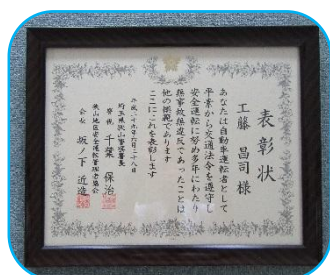 表彰状
工藤昌司様
あなたは自動車運転者として
平素から交通法令を遵守し
安全運転に努め多年にわたり
無事故無違反であったことは
他の模範であります
ここにこれを表彰します
平成二十九年六月二十八日
埼玉県狭山警察署長
警視 千葉保治
狭山地区安全運転管理者協会
会長 坂ノ下近造